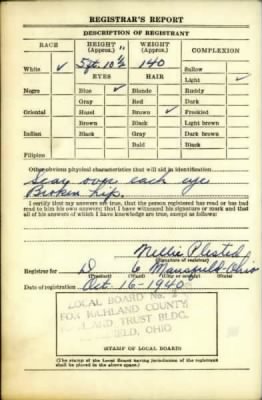 REGISTRAR'S REPORT
DESCRIPTION OF REGISTRANT
RACE HEIGHT (Approx.) WEIGHT (Approx.) COMPLEXION
White ✓ 5 ft. 10½" 140 Sallow
EYES HAIR Light ✓
Negro Blue ✓ Blonde Ruddy
Gray Red Dark
Oriental Hazel Brown ✓ Freckled
Brown Black Light brown
Indian Black Gray Dark brown
Bald Black
Filipino
Other obvious physical characteristics that will aid in identification
Scar over each eye
Broken hip.
I certify that my answers are true; that the person registered has read or has had
read to him his own answers; that I have witnessed his signature or mark and that
all of his answers of which I have knowledge are true, except as follows:
Nellie Plested
(Signature of registrar)
Registrar for D 6 Mansfield-Ohio
(Precinct) (Ward) (City or county) (State)
Date of registration Oct. 16-1940
LOCAL BOARD No.
FOR RICHLAND COUNTY
TRUST BLDG.
OHIO
(STAMP OF LOCAL BOARD)
(The stamp of the Local Board having jurisdiction of the registrant
shall be placed in the above space.)